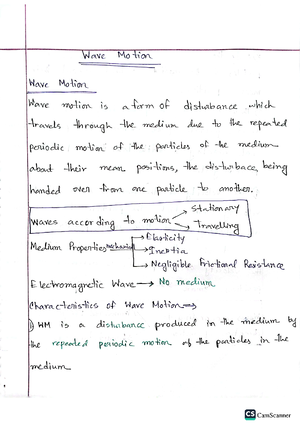 Wave Motion
Wave Motion
Wave motion is a form of disturbance which
travels through the medium due to the repeated
periodic motion of the particles of the medium
about their mean positions, the disturbace being
handed over from one particle to another.
Waves according to motion → Stationary
→ Travelling
Medium Properties → Elasticity
→ Inertia
→ Negligible Frictional Resistance
Electromagnetic Wave → No medium
Characteristics of Wave Motion →
1) WM is a disturbance produced in the medium by
the repeated periodic motion of the particles in the
medium
CS CamScanner